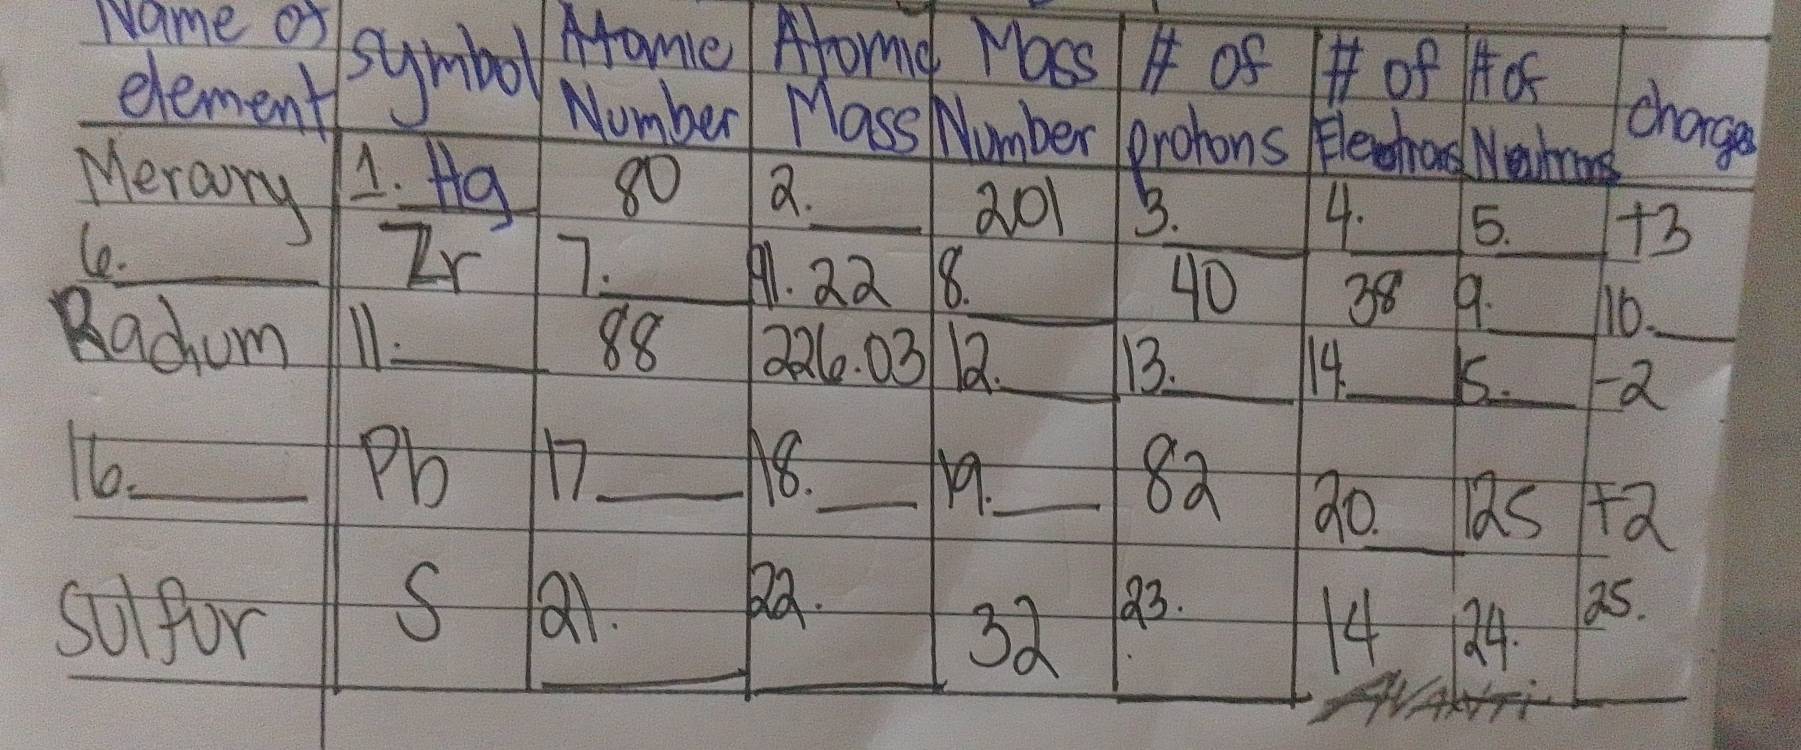 Name of element symbol Atomic Number Atomic Mass Mass Number # of protons # of Electrons # of Neutrons charge
Mercury 1. Hg 80 2. 201 3. 4. 5. +3
6. Zr 7. 91.22 8. 40 38 9. 10.
Radium 11. 88 226.03 12. 13. 14. 15. -2
16. Pb 17 18. 19. 82 20. 125 +2
Sulfur S 21. 22. 32 23. 14 24. 25.